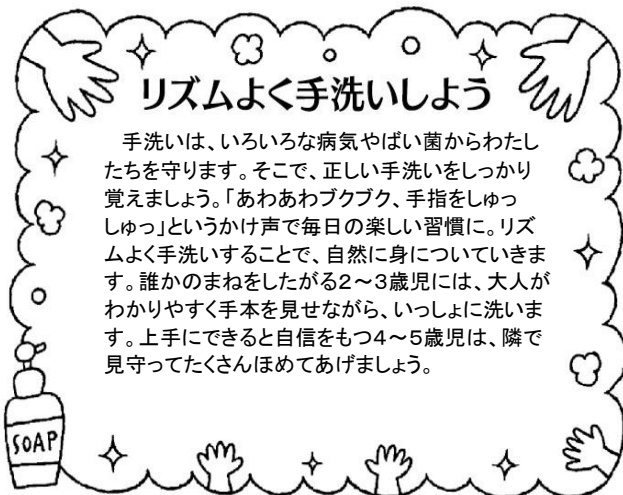 リズムよく手洗いしよう
手洗いは、いろいろな病気やばい菌からわたし
たちを守ります。そこで、正しい手洗いをしっかり
覚えましょう。「あわあわブクブク、手指をしゅっ
しゅっ」というかけ声で毎日の楽しい習慣に。リズ
ムよく手洗いすることで、自然に身についていきま
す。誰かのまねをしたがる2～3歳児には、大人が
わかりやすく手本を見せながら、いっしょに洗いま
す。上手にできると自信をもつ4～5歳児は、隣で
見守ってたくさんほめてあげましょう。
SOAP